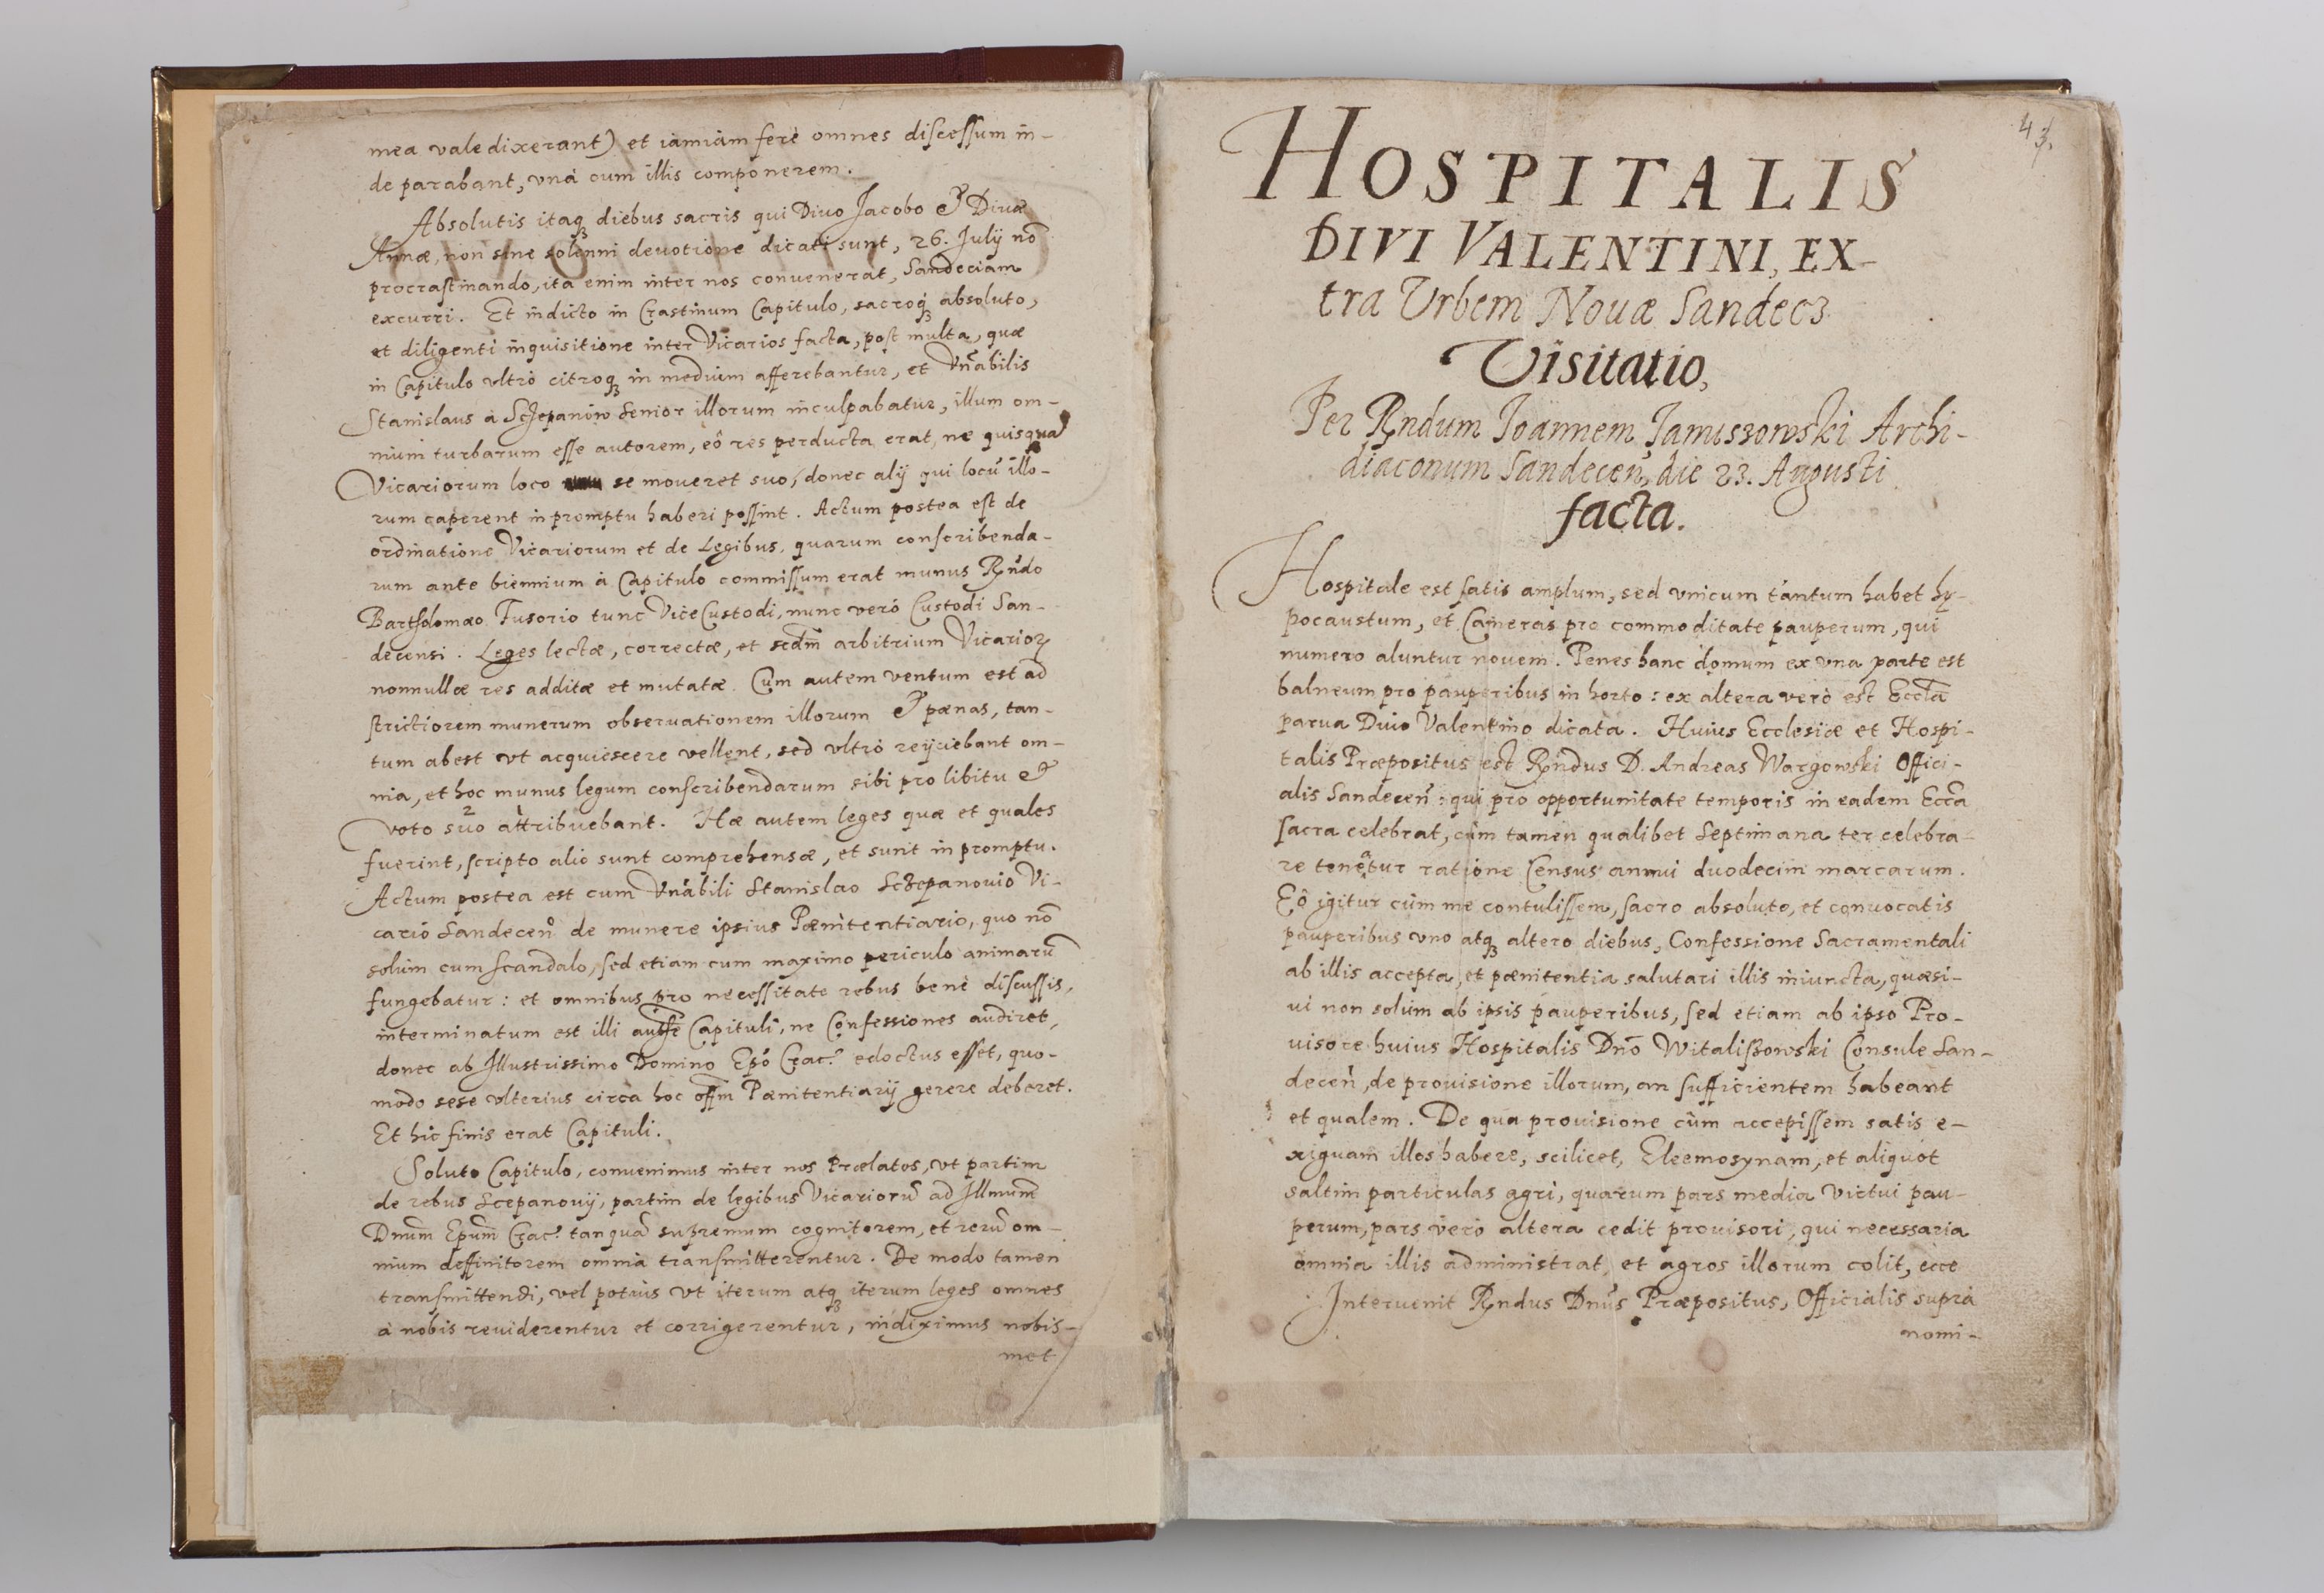 mea valedixerant) et iamiam ferè omnes discessum in-
de parabant, vnà cum illis componerem.
Absolutis itaqꝫ diebus sacris qui Diuo Jacobo et Diuæ
Annæ, non sine solenni deuotione dicati sunt, 26. Julij nō
procrastinando, ita enim inter nos conuenerat, Sandeciam
excurri. Et indicto in Crastinum Capitulo, sacroqꝫ absoluto,
et diligenti inquisitione inter Vicarios facta, post multa, quæ
in Capitulo vltrò citroqꝫ in medium afferebantur, et Vn̄abilis
Stanislaus à Sczepanów Senior illorum inculpabatur, illum om-
nium turbarum esse autorem, eô res perducta erat, ne quisquā
Vicariorum loco se moueret suo, donec alij qui locū illo-
rum caperent in promptu haberi possint. Actum postea est de
ordinatione Vicariorum et de Legibus, quarum conscribenda-
rum ante biennium à Capitulo commissum erat munus Rn̄do
Bartholomæo Fusorio tunc ViceCustodi, nunc verò Custodi San-
decensi. Leges lectæ, correctæ, et scdm̄ arbitrium Vicarioꝝ
nonnullæ res additæ et mutatæ. Cum autem ventum est ad
strictiorem munerum obseruationem illorum et pænas, tan-
tum abest vt acquiescere vellent, sed vltrò reijciebant om-
nia, et hoc munus legum conscribendarum sibi pro libitu et
voto suo attribuebant. Hæ autem leges quæ et quales
fuerint, scripto alio sunt comprehensæ, et sunt in promptu.
Actum postea est cum Vn̄abili Stanislao Sczepanouio Vi-
cario Sandecen̄ de munere ipsius Pænitentiario, quo nō
solùm cum scandalo, sed etiam cum maximo periculo animarū
fungebatur: et omnibus pro necessitate rebus benè discussis,
interminatum est illi Capituli, ne Confessiones audiret,
donec ab Illustrissimo Domino Epō Crac. edoctus esset, quo-
modo sese vlterius circa hoc offm̄ Pænitentiarij gerere deberet.
Et hic finis erat Capituli.
Soluto Capitulo, conuenimus inter nos Prælatos, vt partim
de rebus Scepanouij, partim de legibus Vicariorū ad Illmum̄
Dnum̄ Epum̄ Crac. tanquā supremum cognitorem, et rerū om-
nium deffinitorem omnia transmitterentur. De modo tamen
transmittendi, vel potius vt iterum atqꝫ iterum leges omnes
à nobis reuiderentur et corrigerentur, indiximus nobis-
met
43.
HOSPITALIS
DIVI VALENTINI, EX-
tra Vrbem Nouæ Sandecz
Visitatio,
Per Rndum Joannem Januszowski Archi-
diaconum Sandecen̄, die 23. Augusti
facta.
Hospitale est satis amplum, sed vnicum tantum habet hy-
pocaustum, et Cameras pro commoditate pauperum, qui
numero aluntur nouem. Penes hanc domum ex vna parte est
balneum pro pauperibus in horto: ex altera verò est Eccl̄a
parua Diuo Valentino dicata. Huius Ecclesiæ et Hospi-
talis Præpositus est Rn̄dus D. Andreas Wargowski Offici-
alis Sandecen̄: qui pro opportunitate temporis in eadem Ecc̄a
sacra celebrat, cùm tamen qualibet Septimana ter celebra-
re teneatur ratione Census annui duodecim marcarum.
Eô igitur cùm me contulissem, sacro absoluto, et conuocatis
pauperibus vno atqꝫ altero diebus, Confessione Sacramentali
ab illis accepta, et pænitentia salutari illis iniuncta, quæsi-
ui non solùm ab ipsis pauperibus, sed etiam ab ipso Pro-
uisore huius Hospitalis Dnō Witaliszowski Consule San-
decen̄, de prouisione illorum, an sufficientem habeant
et qualem. De qua prouisione cùm accepissem satis e-
xiguam illos habere, scilicet, Eleemosynam, et aliquot
saltim particulas agri, quarum pars media victui pau-
perum, pars verò altera cedit prouisori, qui necessaria
omnia illis administrat, et agros illorum colit, ecce
Interuenit Rndus Dnūs Præpositus, Officialis suprà
nomi-